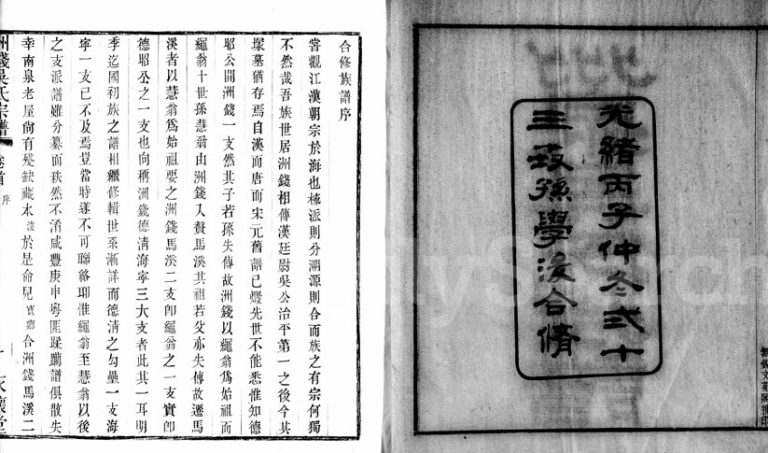 光緒丙子仲冬弍十
三政孫學浚合脩
合修族譜序
嘗觀江漢朝宗於海也極派則分溯源則合而族之有宗何獨
不然哉吾族世居洲錢相傳漢廷尉吳公治平第一之後今其
塚墓猶存焉自漢而唐而宋元舊譜已燬先世不能悉惟知德
昭公開洲錢一支然其子若孫失傳故洲錢以繩翁為始祖而
繩翁十世孫慧翁由洲錢入贅馬溪其祖若父亦失傳故遷馬
溪者以慧翁為始祖要之洲錢馬溪二支即繩翁之一支實即
德昭公之一支也向稱洲錢德清海寧三大支者此其一耳明
季迄國初族之譜相繼修輯世系漸詳而德清之勾壘一支海
寧一支已不及焉豈當時遂不可聯絡耶惟繩翁至慧翁以後
之支派譜雖分纂而秩然不淆咸豐庚申粵匪蹂躪譜俱散失
幸南泉老屋尚有殘缺藏本浚於是命兒寶 合洲錢馬溪二
洲錢吳氏宗譜 卷首 序